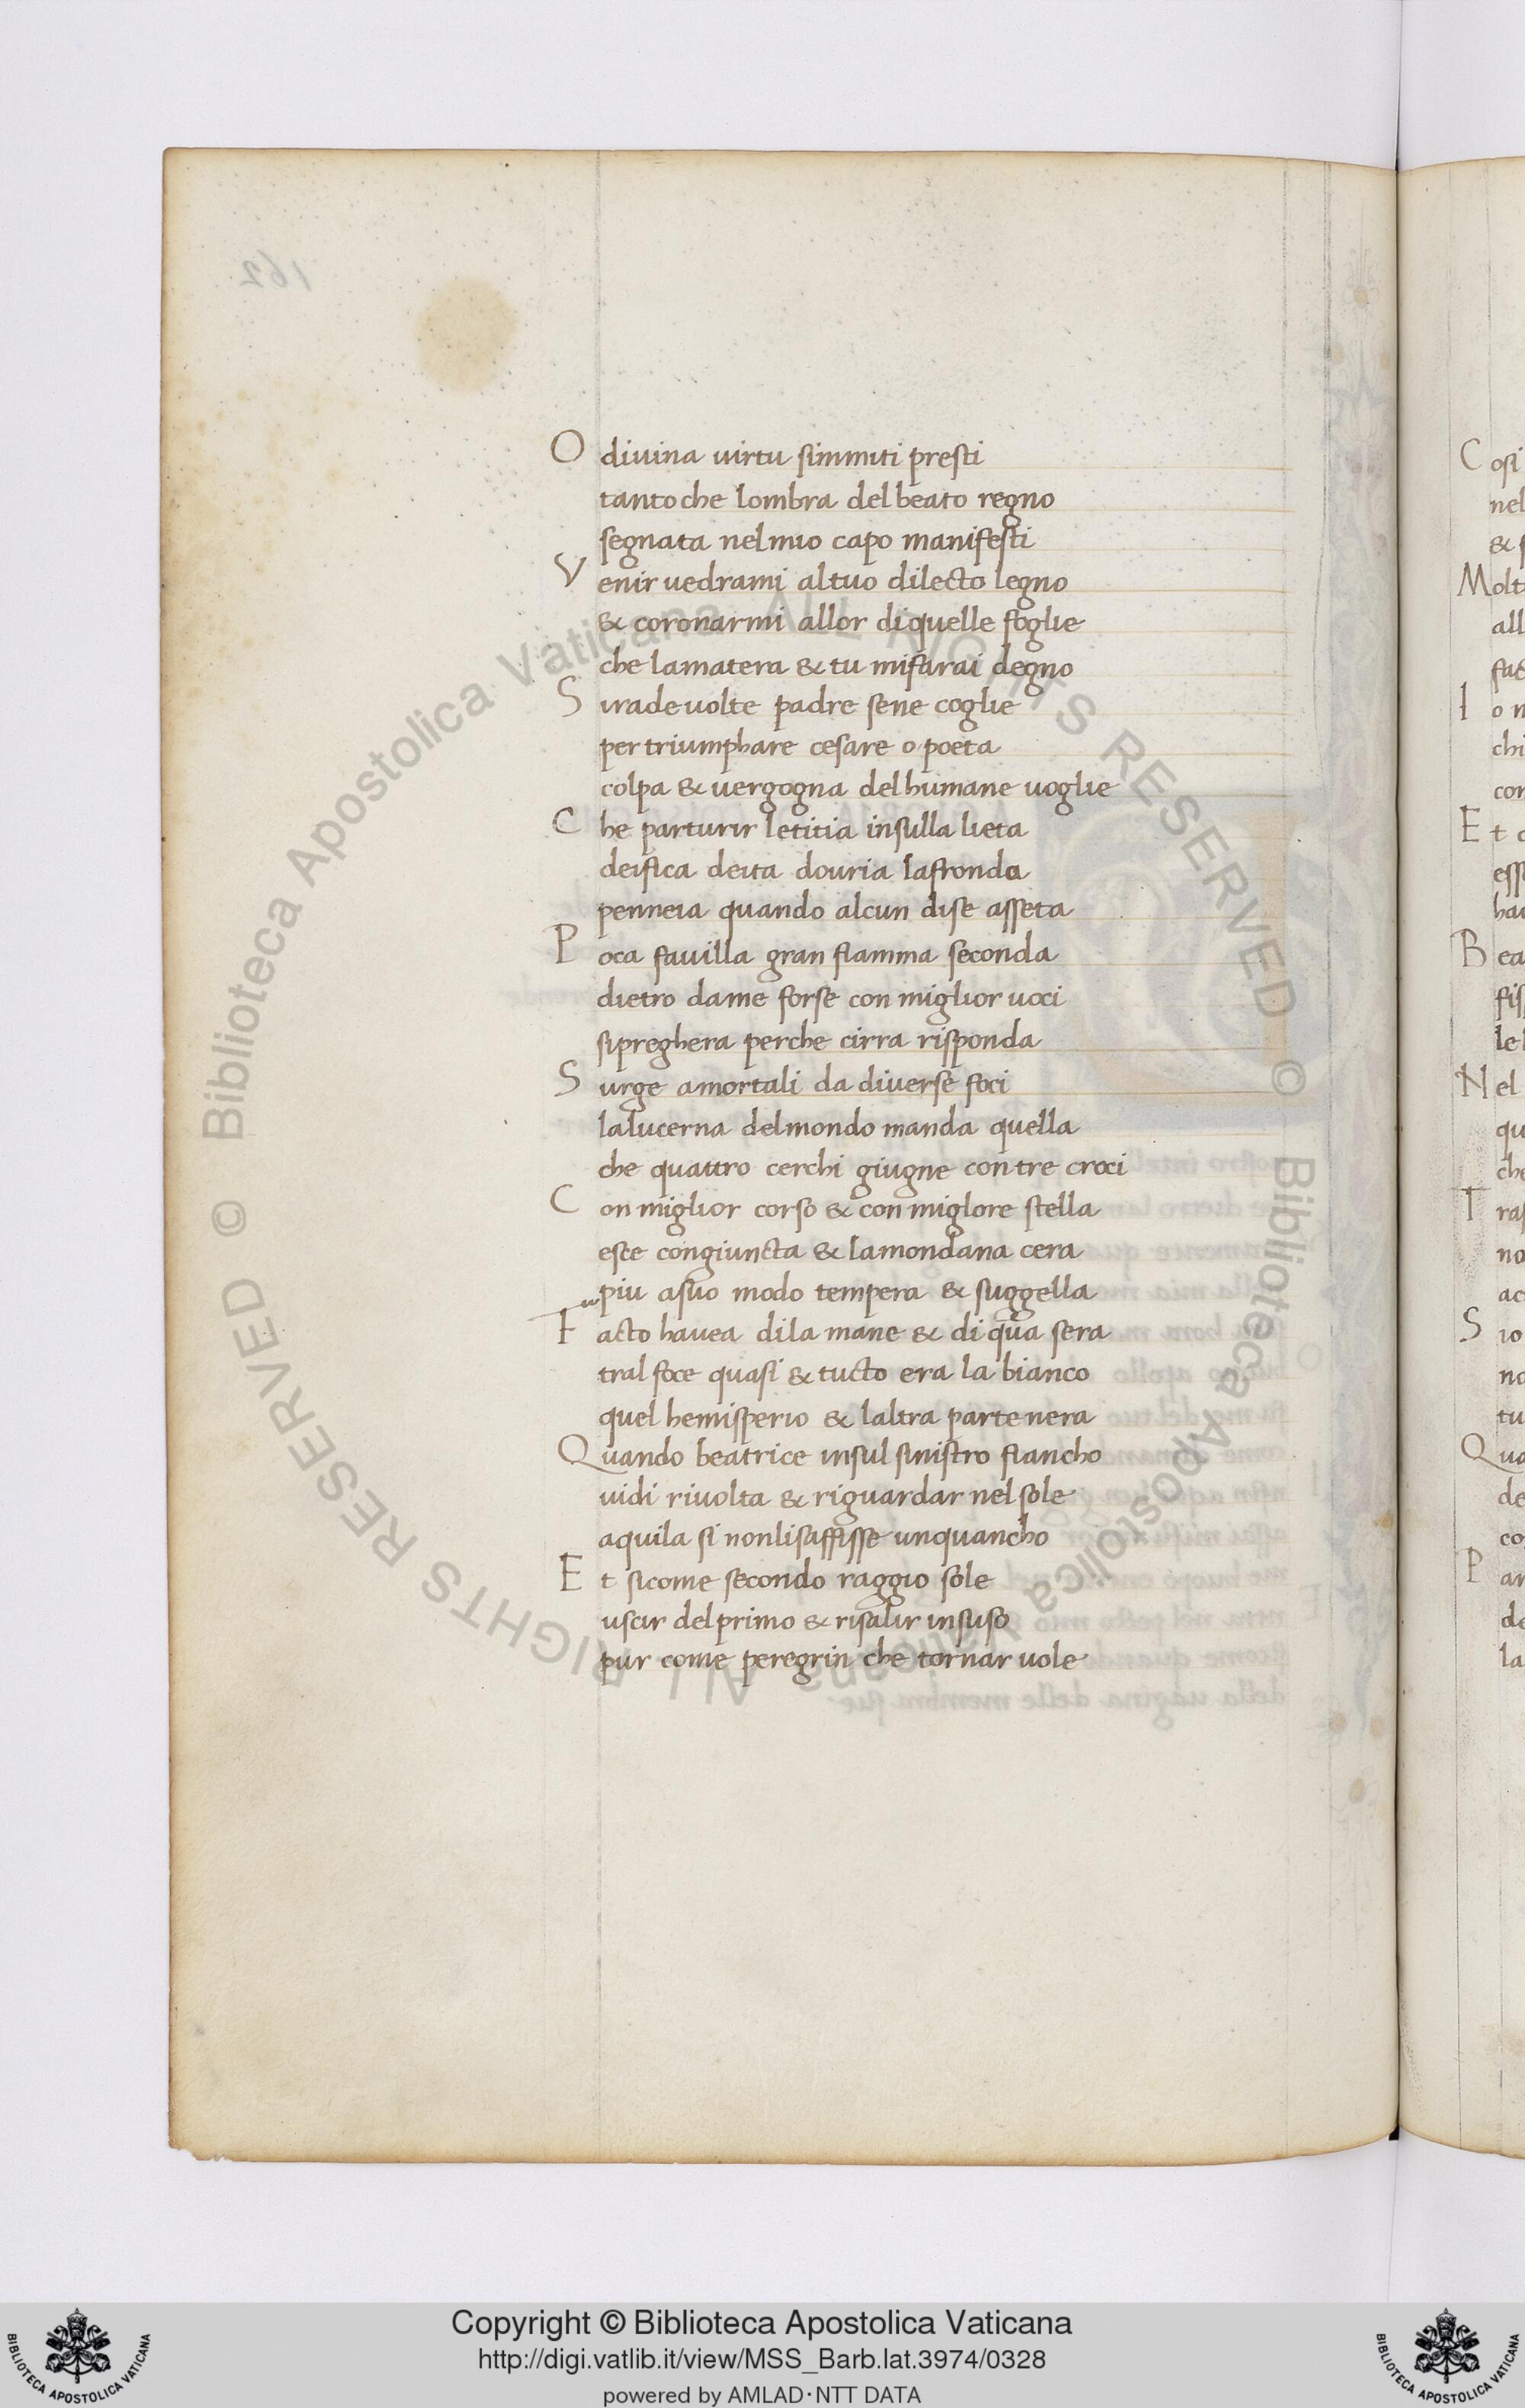 162
O divina virtu simmiti presti
tanto che lombra del beato regno
segnata nel mio capo manifesti
Venir vedrami al tuo dilecto legno
& coronarmi allor di quelle foglie
che la matera & tu mi farai degno
S irade volte padre sene coglie
per triumphare cesare o poeta
colpa & vergogna del humane voglie
Che parturir letitia in sulla lieta
deifica deita douria la fronda
penneia quando alcun di se asseta
Poca favilla gran fiamma seconda
dietro da me forse con miglior voci
si preghera perche cirra risponda
Surge a mortali da diverse foci
la lucerna del mondo manda quella
che quattro cerchi giugne con tre croci
Con miglior corso & con miglore stella
esce congiuncta & la mondana cera
piu a suo modo tempera & suggella
Facto havea di la mane & di qua sera
tral foce quasi & tucto era la bianco
quel hemisperio & laltra parte nera
Quando beatrice in sul sinistro fiancho
vidi rivolta & riguardar nel sole
aquila si non li saffisse unquancho
Et si come secondo raggio sole
uscir del primo & risalir in suso
pur come peregrin che tornar vole
Cosi
nel
&
Molt
all
fac
I o n
chi
con
Et
ess
hau
Bea
fis
le
Nel
qu
che
Tras
no
ac
S io
no
tu
Qua
de
co
P ar
de
la
© Biblioteca Apostolica Vaticana ALL RIGHTS RESERVED © Biblioteca Apostolica Vaticana ALL RIGHTS RESERVED
Copyright © Biblioteca Apostolica Vaticana
http://digi.vatlib.it/view/MSS_Barb.lat.3974/0328
powered by AMLAD·NTT DATA
BIBLIOTECA APOSTOLICA VATICANA
BIBLIOTECA APOSTOLICA VATICANA